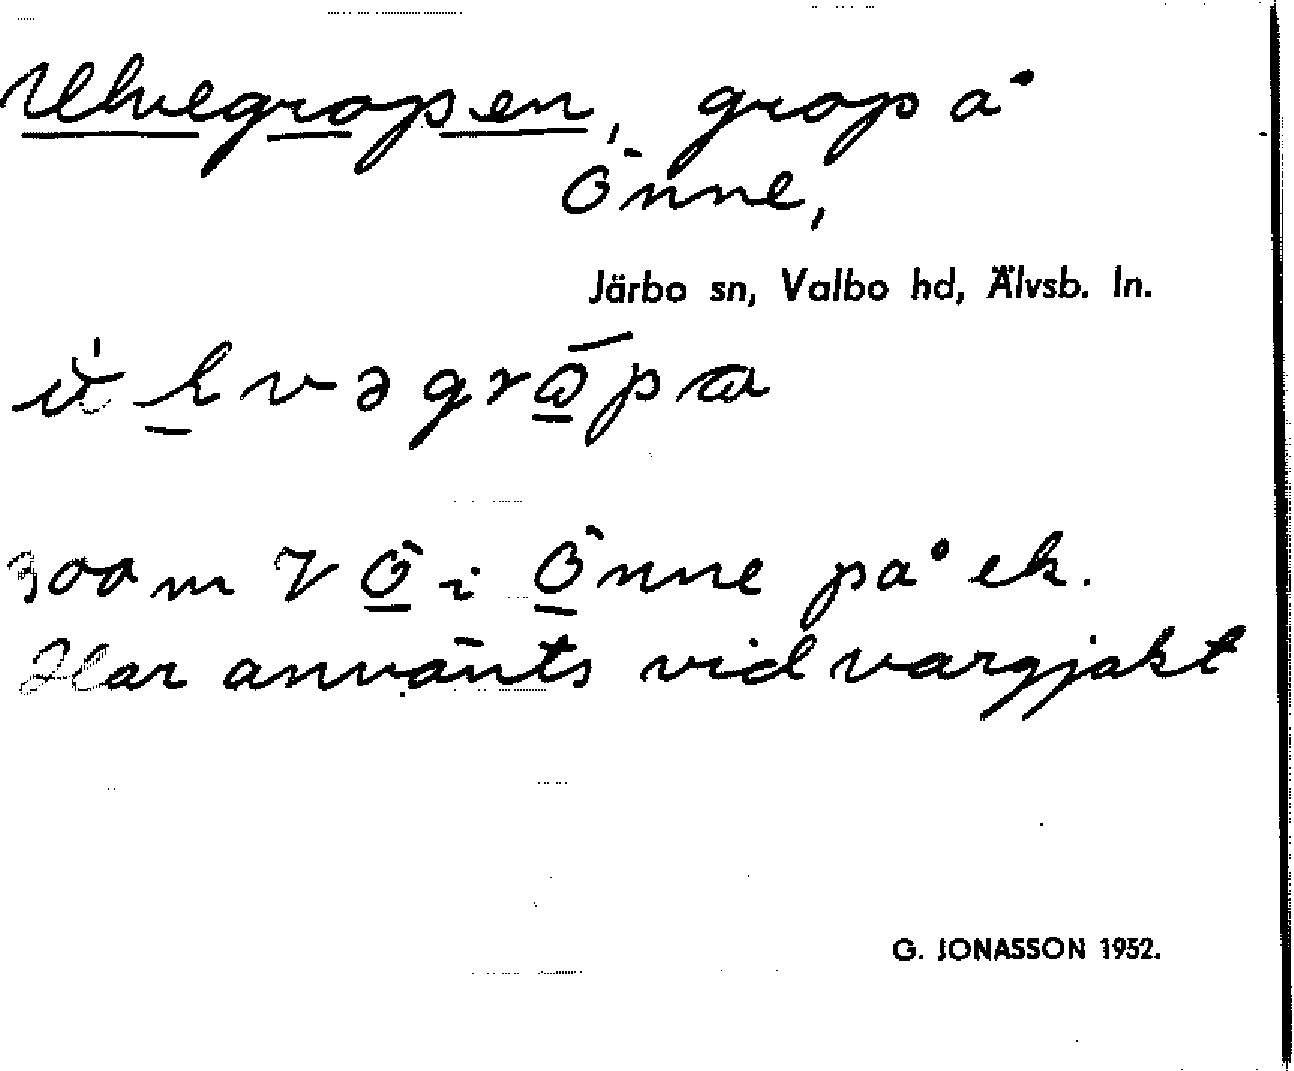 Ulvegropen, grop å
Önne,
Järbo sn, Valbo hd, Älvsb. ln.
300 m V Ö i Önne på ek.
Har använts vid vargjakt
G. JONASSON 1952.